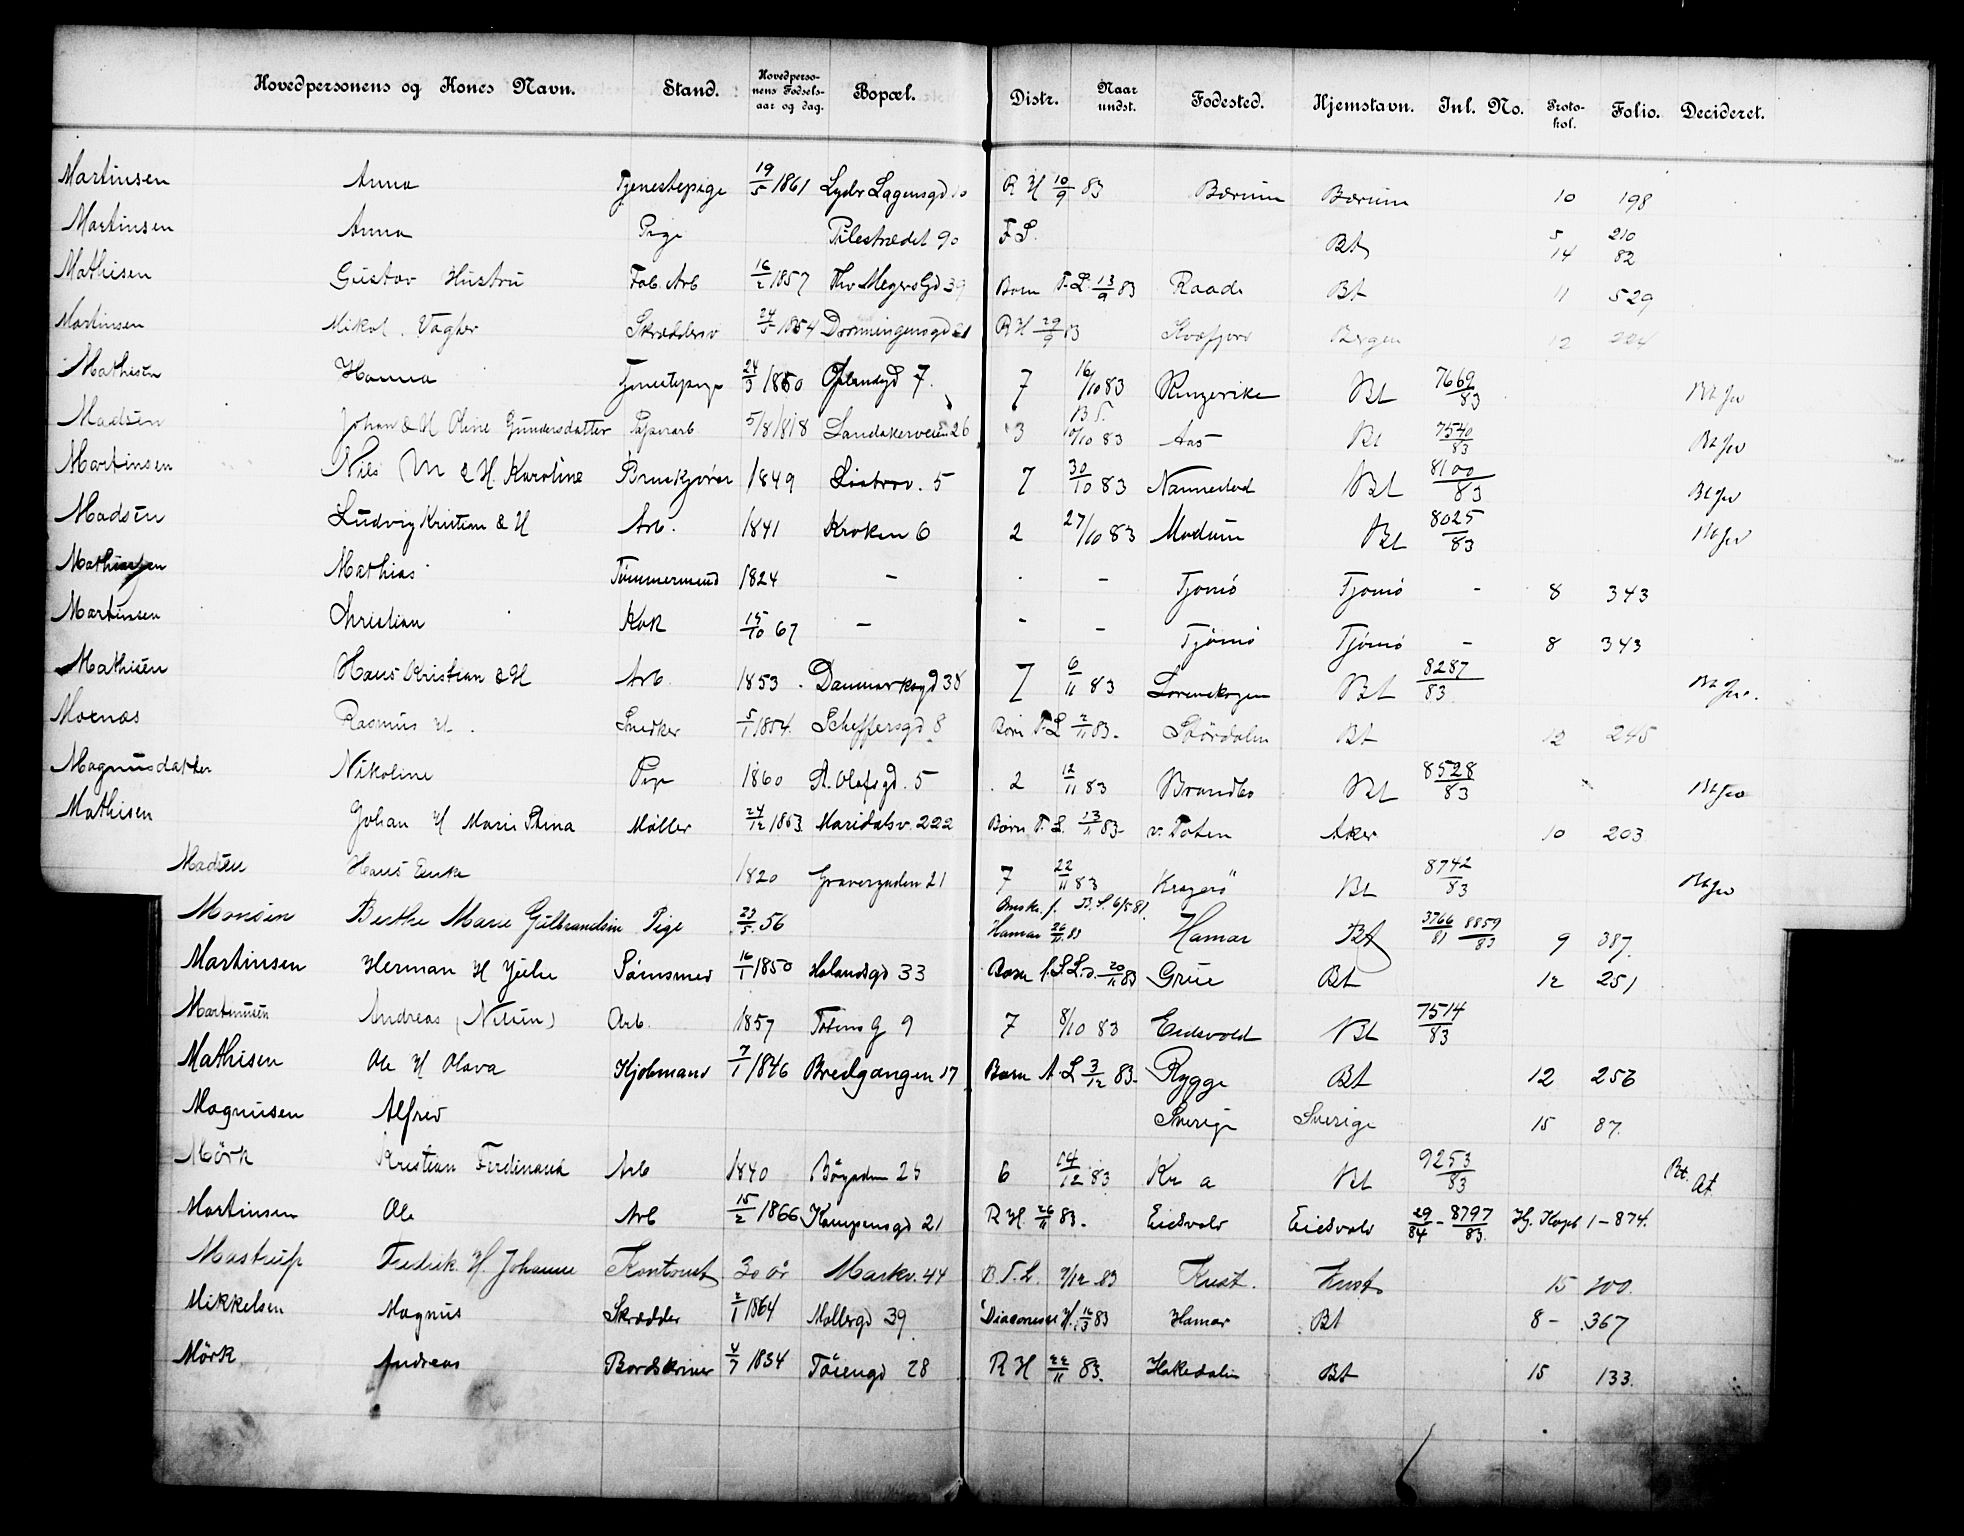 Hovedpersonens og Kones Navn. Stand. Hovedpersonens Fødselsaar og dag. Bopæl. Distr. Naar undst. Fødested. Hjemstavn. Inl. No. Protokol. Folio. Decideret.
Martinsen Anna Tjenestepige 19/5 1861 R H 10/9 83 Bærum Bærum 10 198
Martinsen Anna Pige Pilestrædet 90 F L. Bt 5 210
14 82
Mathisen Gustav Hustru Fab. Arb 16/2 1857 Thv Meyers Gd 39 Børn T. L. 13/9 83 Raade Bt 11 529
Martinsen Mikal Skrædersv 24/5 1854 Dronningensgd 21 R H 29/9 83 Bergen 12
Mathisen Hanna Tjenestepige 24/3 1860 7. 7 16/10 83 Ringerike Bt 7669/83 Bt Jv
Madsen Johan & H Oline Gundersdatter Papirarb 5/8 1818 Sandakerveien 26 3 10/10 83 Aas Bt 7540/83 Bt Jv
Martinsen Nils M & H. Karoline 1849 5 7 30/10 83 Nannestad Bt 8100/83 Bt Jv
Madsen Ludvig Kristian & H Arb. 1841 Kroken 6 2 27/10 83 Modum Bt 8025/83 Bt Jv
Mathias Tømmermand 1824 – – Tjømø Tjømø - 8 343
Martinsen Christian Kok 15/10 67 – - – Tjømø Tjømø – 8 343
Mathisen Hans Kristian & H Arb. 1853 Danmarksgd 38 7 6/11 83 Lørenskogen Bt 8287/83 Bt Jv.
Moenæs Rasmus H. Snedker 5/1 1854. Scheffersgd 8 Børn T. L 2/11 83. Stördalen Bt 12 245
Magnusdatter Nikoline Pige 1860 St. Olafsgd. 5 2 12/11 83 Brandbo Bt 8528/83 Bt Jv
Mathisen Johan H Marie Stina Møller 24/12 1853 Maridalsv. 222 Børn T. L. 13/11 83 v. Toten Aker 10 203
Madsen Hans 1820 Gravergaden 21 7 22/11 83 Kragerö Bt 8742/83 Bt Jv
Monsen Berthe Marie Gulbrandsen Pige 23/5 56 Ønsk. f. B. S. 6/5 81. Hamar 26/11 83 Hamar Bt 3766/81 8859/83 9 387.
Martinsen Herman H Julie 16/1 1850 Hølandsgd 33 Børn 20/11 83 Grue Bt 12 251
Martinusen Andreas (Nilsen) Arb. 1857 Totens G 9 7 8/10 83 Eidsvold Bt 7514/83
Mathisen Ole H Olava Kjøbmand 7/1 1846 Bredgangen 17 Børn A. L 3/12 83. Rygge Bt 12 256
Magnusen Alfred Sverige Sverige 15 87.
Mörk Kristian Ferdinand Arb 1840 Bögaden 25 6 04/12 83. Kr a Bt 9253/83 Bt. At.
Martinsen Ole Arb 15/2 1866 Kampensgd 21 R H. 26/11 83. Eidsvold Eidsvold 29/84 - 8797/83. Hj. Kopb 1 – 874.
Mastrup Fredrik. H. Johanne Kontorist 30 år Markv. 44 B T. L. 7/12 83 Krist. Krist. 15 200.
Mikkelsen Magnus Skrædder 2/1 1864 Møllergd 39 Diaconisse H. 16/3 83 Hamar Bt 8 – 367
Mörk Andreas Bordskriver 4/7 1834 Töiengd 28 R H 22/11 83. Hakedalen Bt 15 133.